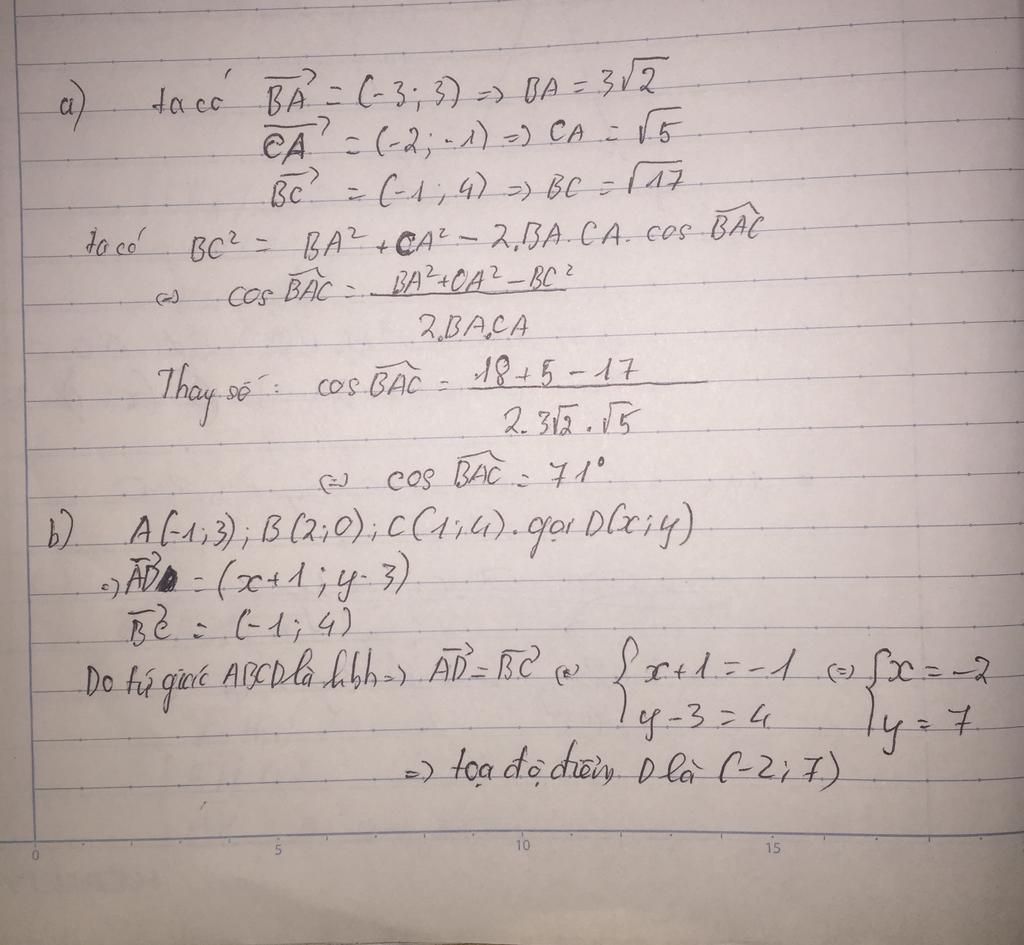 a) ta có BA⃗ = (-3; 3) => BA = 3√2
CA⃗ = (-2; -1) => CA = √5
BC⃗ = (-1; 4) => BC = √17
ta có BC² = BA² + CA² - 2.BA.CA. cos BAC^
<=> cos BAC^ = (BA² + CA² - BC²) / (2.BA.CA)
Thay số: cos BAC^ = (18 + 5 - 17) / (2. 3√2 . √5)
<=> cos BAC^ = 71°
b) A(-1; 3); B(2; 0); C(1; 4). gọi D(x; y)
=> AD⃗ = (x+1; y-3)
BC⃗ = (-1; 4)
Do tứ giác ABCD là hbh => AD⃗ = BC⃗ <=> { x+1 = -1 <=> { x = -2
y-3 = 4 y = 7
=> toạ độ điểm D là (-2; 7)
0 5 10 15